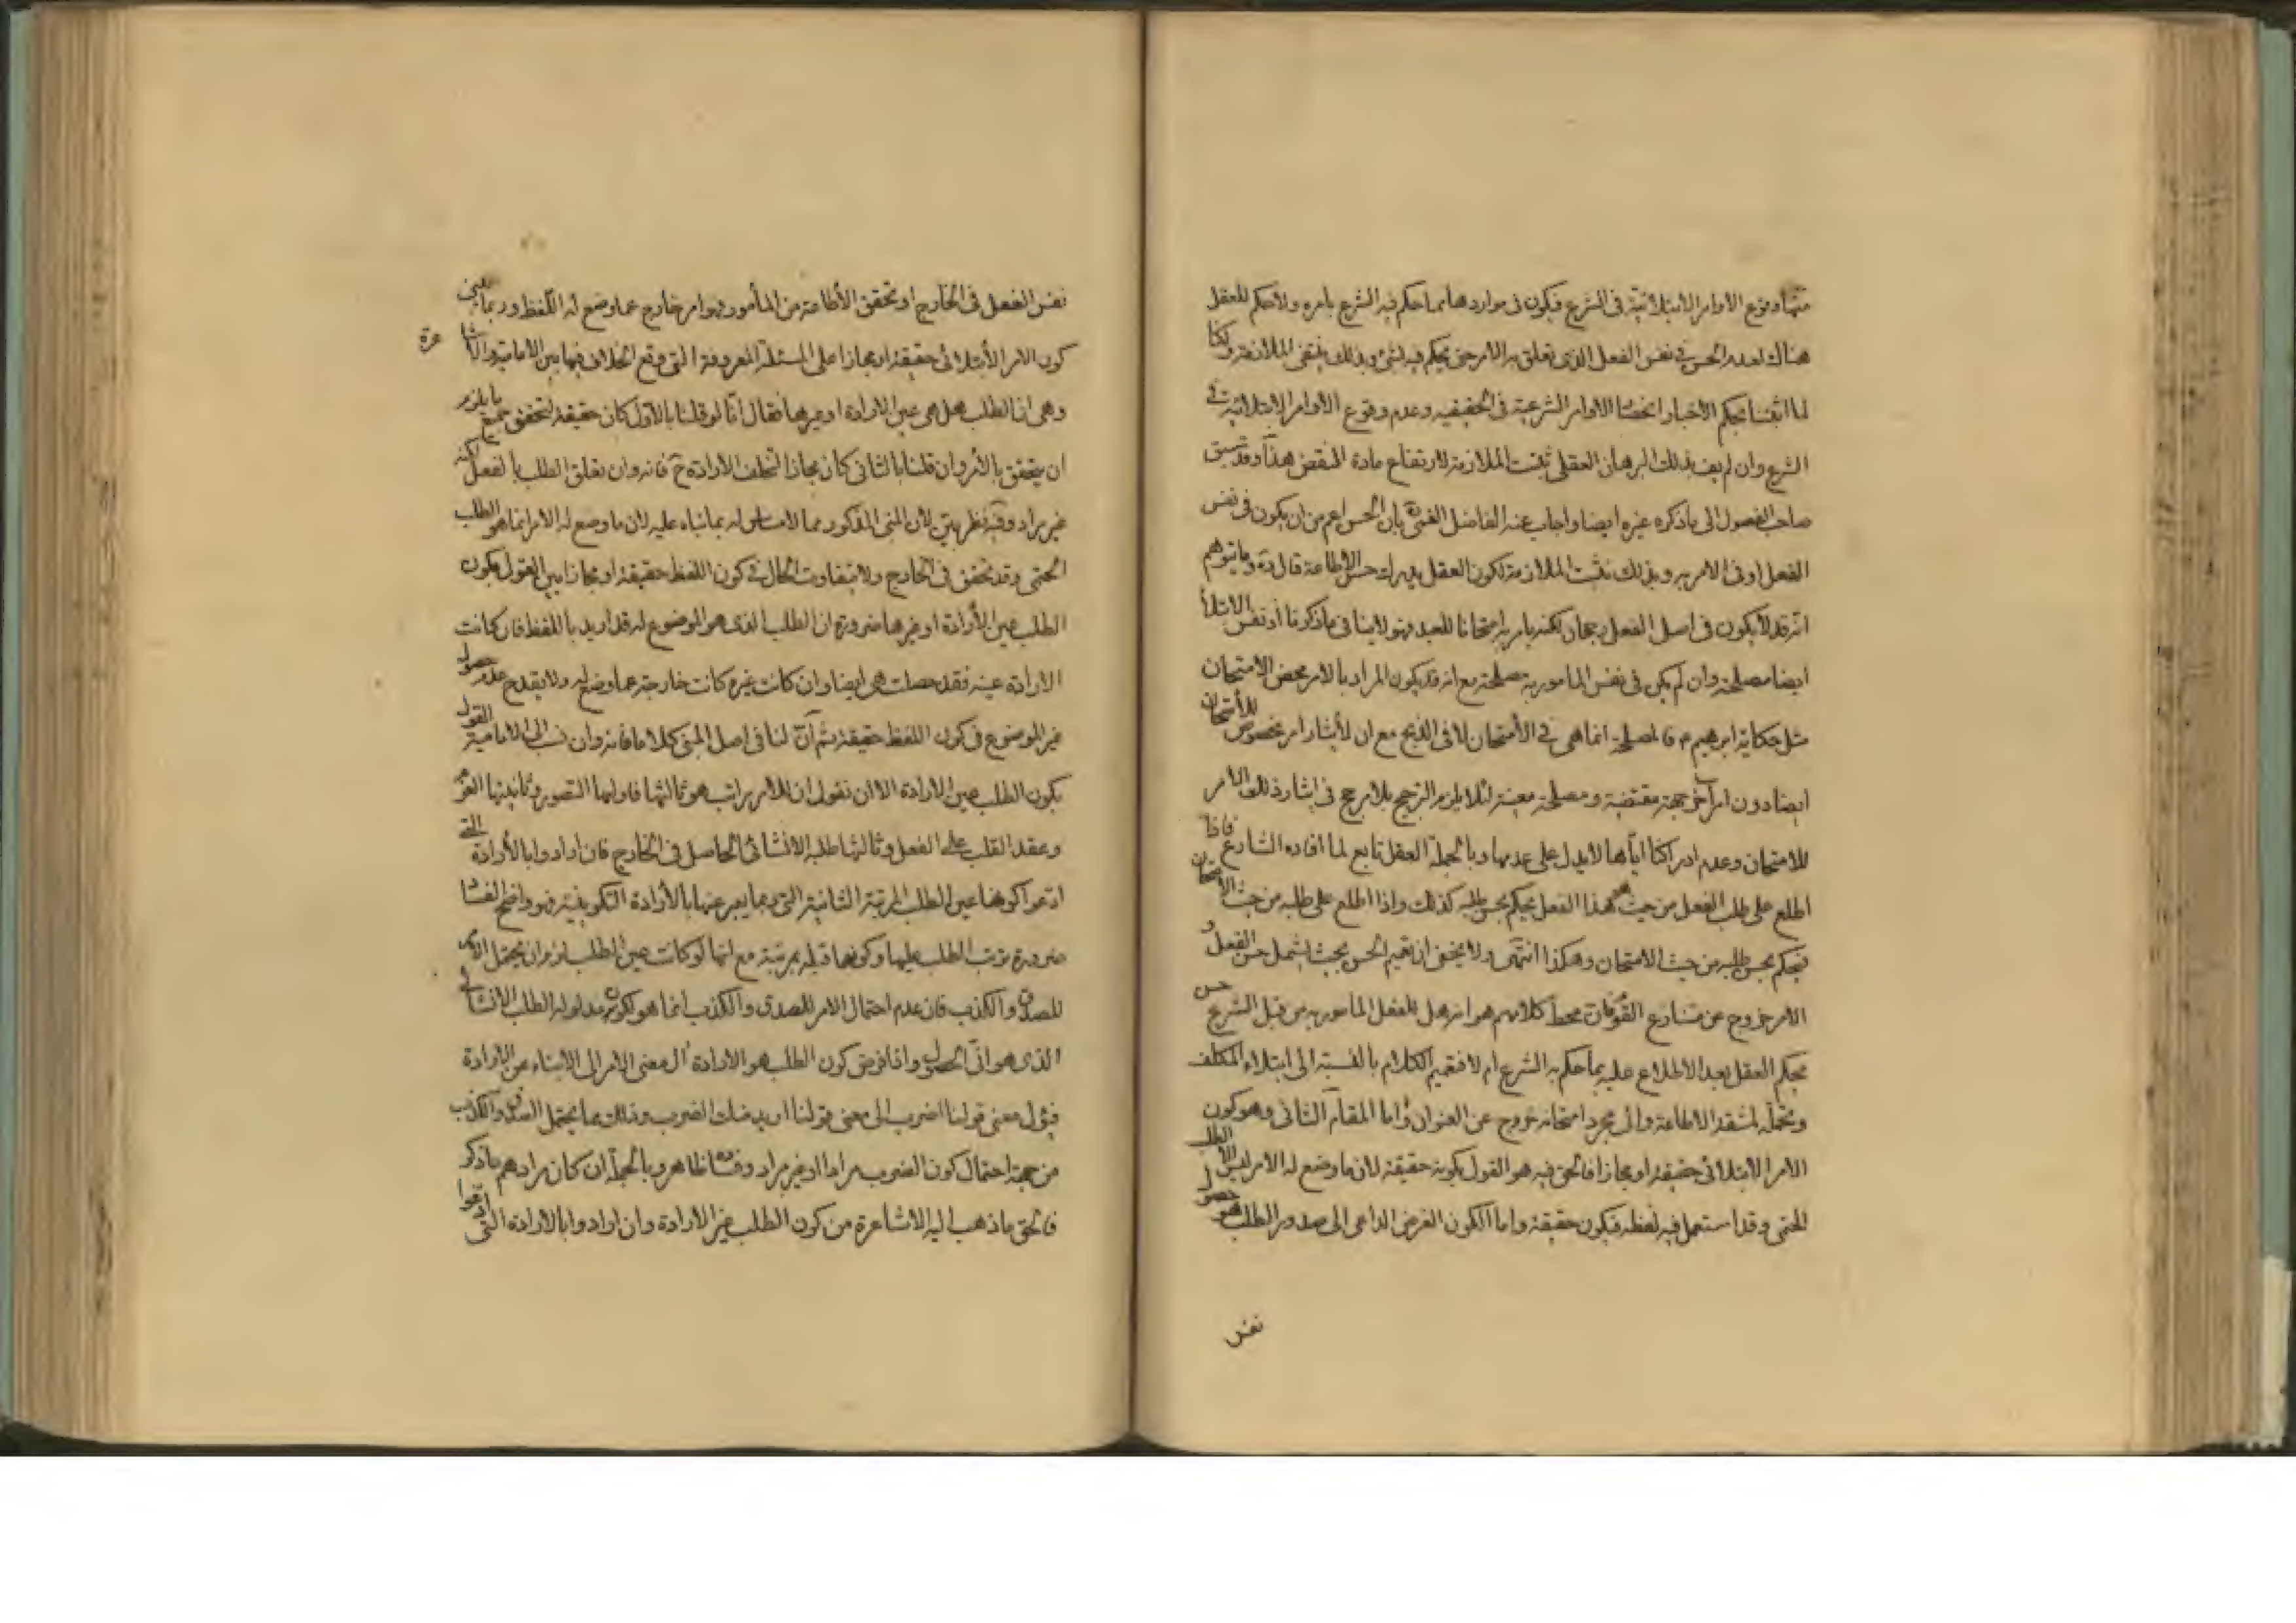 منها وقوع الاوامر الابتلائية فى الشرع فيكون فى مواردها مما حكم فيه الشرع بامره ولا حكم للعقل
هناك لعدم الحسن فى نفس الفعل الذى تعلق به الامر حتى يحكم فيه بشئ وبذلك ينتفى الملازمة ولكنا
لما اثبتنا بحكم الاخبار انحصار الاوامر الشرعية فى الحقيقيه وعدم وقوع الاوامر الابتلائية فى
الشرع وان لم يف بذلك البرهان العقلى ثبتت الملازمة لارتفاع مادة النقض هذا وقد سبق
صاحب الفصول الى ما ذكره غيره ايضا واجاب عنه الفاضل القمى بان الحسن اعم من ان يكون فى نفس
الفعل او فى الامر به وبذلك تثبت الملازمة لكون العقل يدرك حسن الاطاعة قال وما يتوهم
انه قد لا يكون فى اصل الفعل رجحان لكنه يامر به امتحانا للعبد فهو لا ينافى ما ذكرنا اذ نفس الابتلاء
ايضا مصلحة وان لم يكن فى نفس المامور به مصلحة مع انه قد يكون المراد بالامر محض الامتحان
مثل حكاية ابرهيم م فالمصلحة انما هى فى الامتحان لا فى الذبح مع ان لايثار امر مخصوص للامتحان
ايضا دون امر آخر جهة مقتضية ومصلحة معينة لئلا يلزم الترجيح بلا مرجح فى ايثار ذلك الامر
للامتحان وعدم ادراكنا اياها لا يدل على عدمها وبالجملة العقل تابع لما افاده الشارع فاذا
اطلع على طلب الفعل من حيث هو هذا الفعل يحكم بحسن طلبه كذلك واذا اطلع على طلبه من حيث الامتحان
فيحكم بحسن طلبه من حيث الامتحان وهكذا انتهى ولا يخفى ان تعميم الحسن بحيث يشمل حسن الفعل و
الامر خروج عن متنازع القوم فان محط كلامهم هو انه هل للفعل المأمور به من قبل الشرع حسن
يحكم العقل بعد الاطلاع عليه بما حكم به الشرع ام لا فتعميم الكلام بالنسبة الى ابتلاء المكلف
وتحمله لمشقة الاطاعة والى مجرد امتحانه خروج عن العنوان واما المقام الثانى وهو كون
الامر الابتلائى حقيقة او مجازا فالحق فيه هو القول بكونه حقيقة لان ما وضع له الامر ليس الا الطلب
الحتمى وقد استعمل فيه لفظه فيكون حقيقة واما الكون الغرض الداعى الى صدور الطلب هو حصول
نفس
نفس الفعل فى الخارج او تحقق الاطاعة من المأمور فهو امر خارج عما وضع له اللفظ وربما يبنى
كون الامر الابتلائى حقيقة او مجازا على المسئلة المعروفة التى وقع الخلاف فيها بين الامامية والاشاعرة
وهى ان الطلب هل هى عين الارادة او غيرها فقال انا لو قلنا بالاول كان حقيقة لتحقق جميع ما يلزم
ان يتحقق بالامر وان قلنا بالثانى كان مجازا لتخلف الارادة ح فانه وان تعلق الطلب بالفعل لكنه
غير مراد وفيه نظر بين لان المبنى المذكور مما لا مساس له بما بناه عليه لان ما وضع له الامر انما هو الطلب
الحتمى وقد تحقق فى الخارج ولا يتفاوت الحال فى كون اللفظ حقيقة او مجازا بين القول بكون
الطلب عين الارادة او غيرها ضرورة ان الطلب الذى هو الموضوع له قد اريد باللفظ فان كانت
الارادة عينه فقد حصلت هى ايضا وان كانت غيره كانت خارجة عما وضع له ولا يقدح عدم حصول
غير الموضوع فى كون اللفظ حقيقة ثم ان لنا فى اصل المبنى كلاما فانه وان نسب الى الامامية القول
بكون الطلب عين الارادة الا ان نقول ان للامر مراتب هو ثالثها فاولها التصور وثانيتها العزم
وعقد القلب على الفعل وثالثها طلبه الانشائى الحاصل فى الخارج فان ارادوا بالارادة التى
ادعوا كونها عين الطلب المرتبة الثانية التى ربما يعبر عنها بالارادة التكوينية فهو واضح الفساد
ضرورة ترتب الطلب عليها وكونها قبله بمرتبة مع انها لو كانت عين الطلب لزم ان يحتمل الامر
للصدق والكذب فان عدم احتمال الامر للصدق والكذب انما هو لكون مدلوله الطلب الانشائى
الذى هو انى الحصول واذا فرض كون الطلب هو الارادة ال معنى الامر الى الانباء عن الارادة
فيؤل معنى قولنا اضرب الى معنى قولنا اريد منك الضرب وذلك مما يحتمل الصدق والكذب
من جهة احتمال كون الضرب مرادا او غير مراد وفساده ظاهر وبالجملة ان كان مرادهم ما ذكر
فالحق ما ذهب اليه الاشاعرة من كون الطلب غير الارادة وان ارادوا بالارادة التى ادعوا